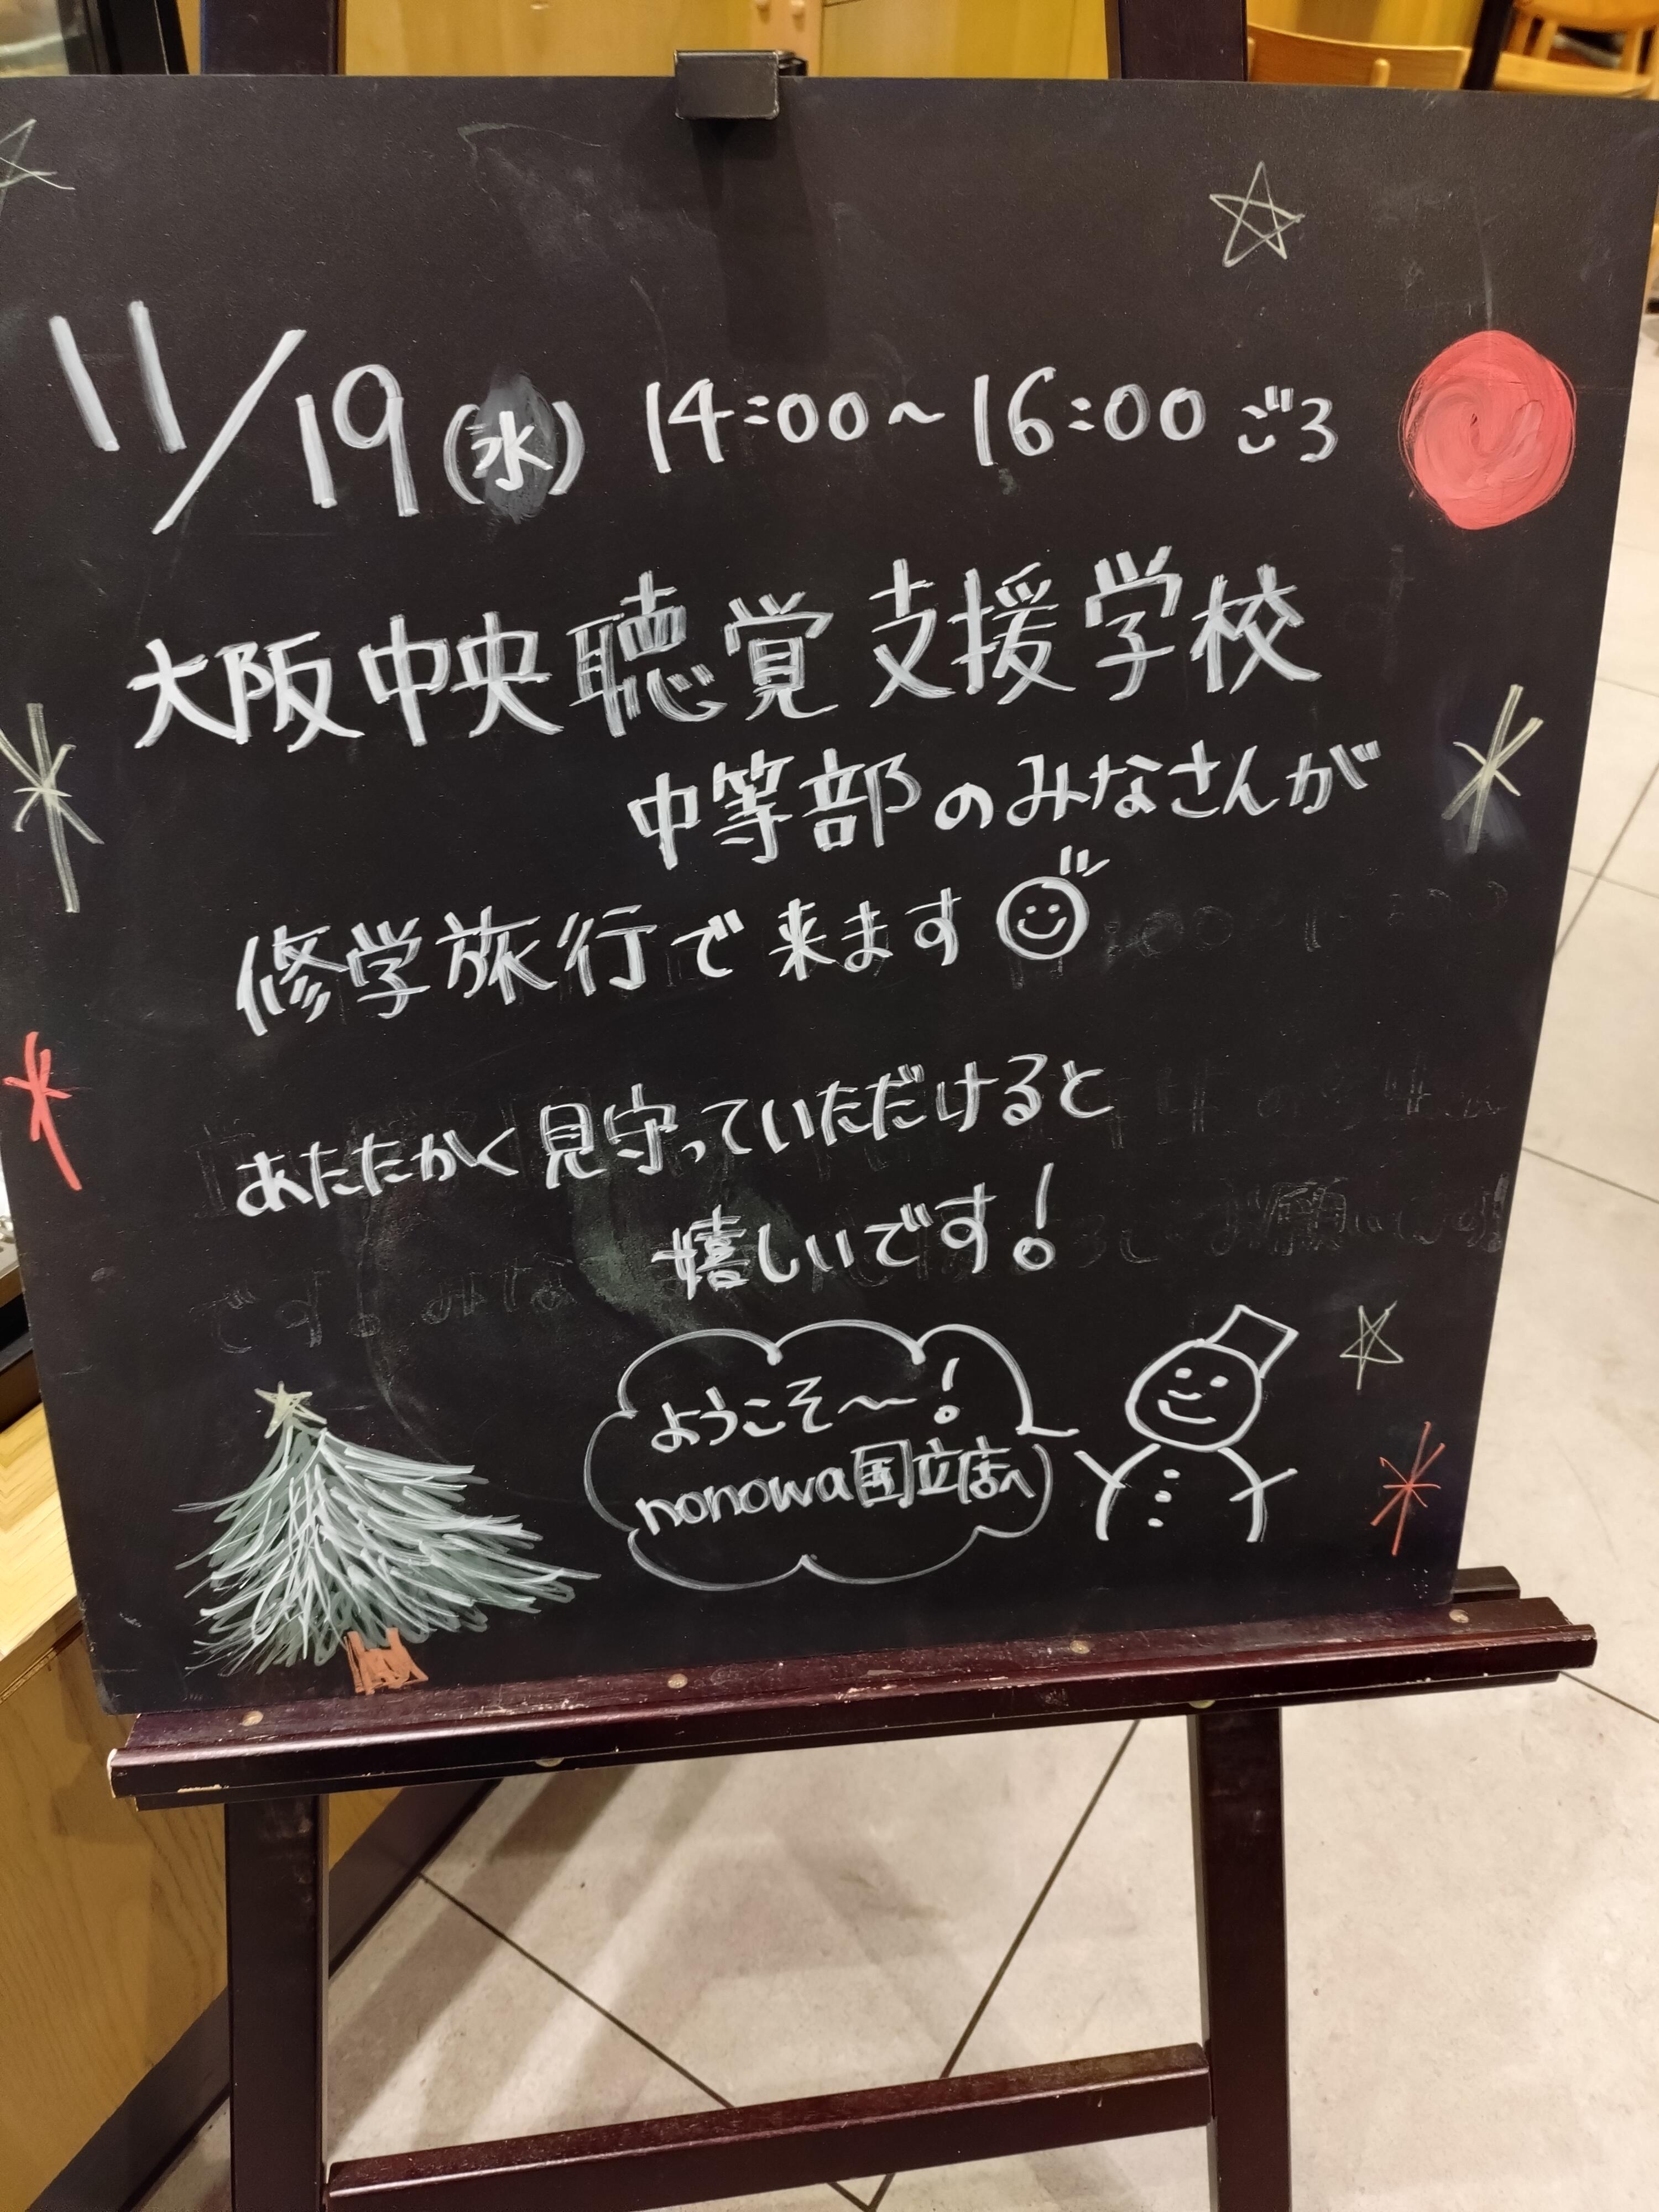 11/19(水) 14:00~16:00ごろ
大阪中央聴覚支援学校
中等部のみなさんが
修学旅行で来ます
あたたかく見守っていただけると
嬉しいです!
ようこそ〜!
nonowa国立店へ